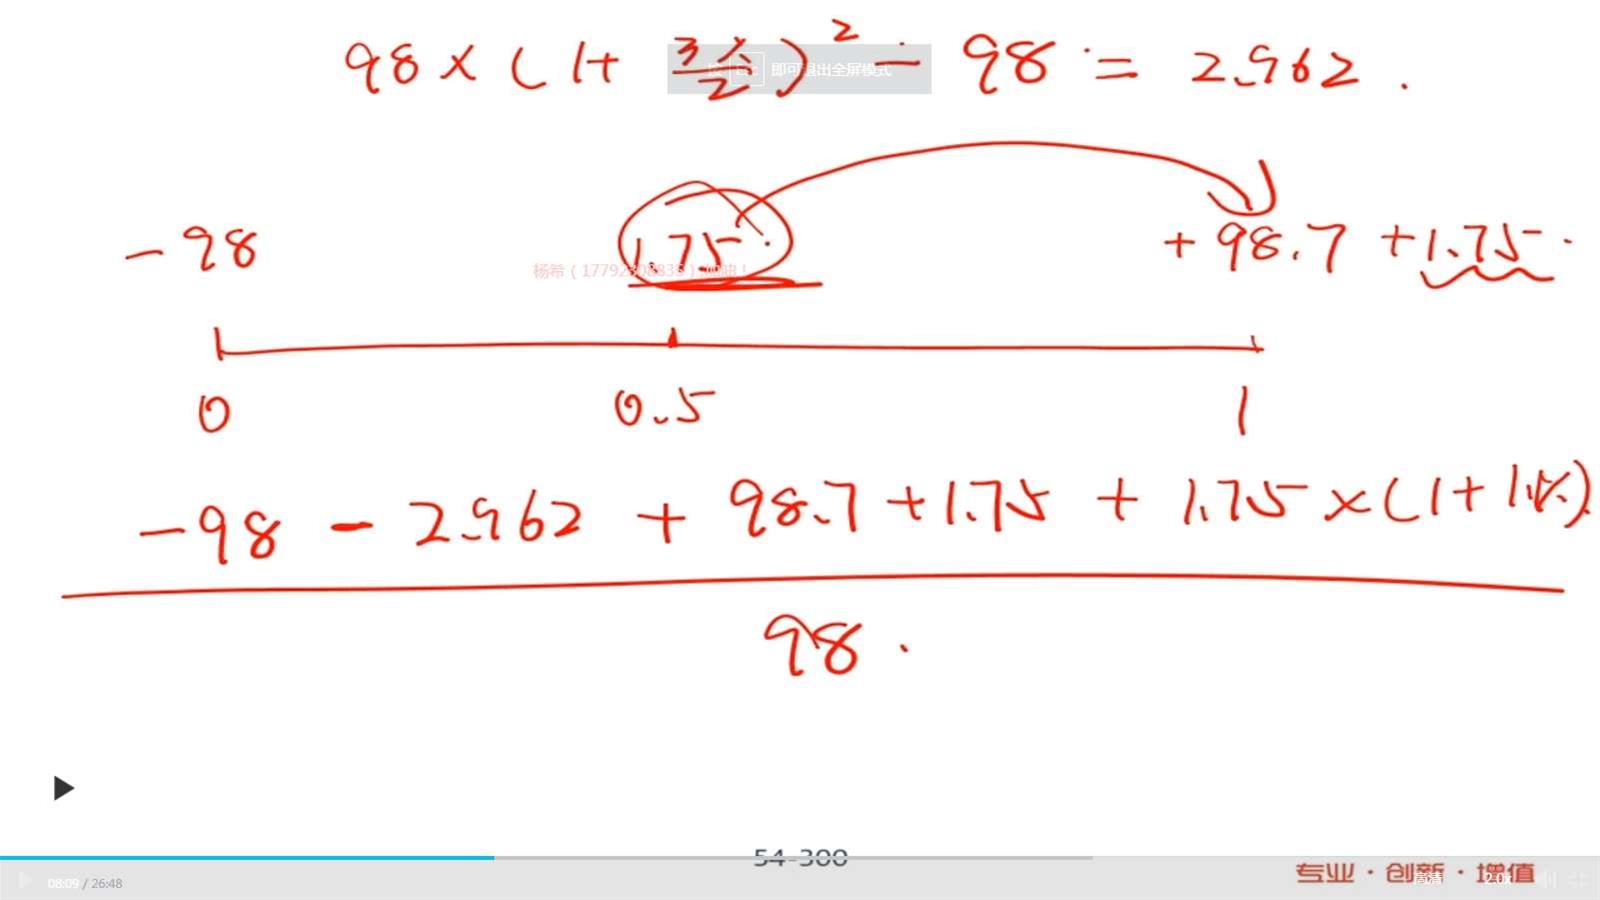 98 × (1 + 3%/2)² - 98 = 2.962.
即可退出全屏模式
-98 1.75 + 98.7 + 1.75.
0 0.5 1
-98 - 2.962 + 98.7 + 1.75 + 1.75 × (1 + 1.5%)
98.
54-300
专业·创新·增值
08:09 / 26:48 高清 2.0x